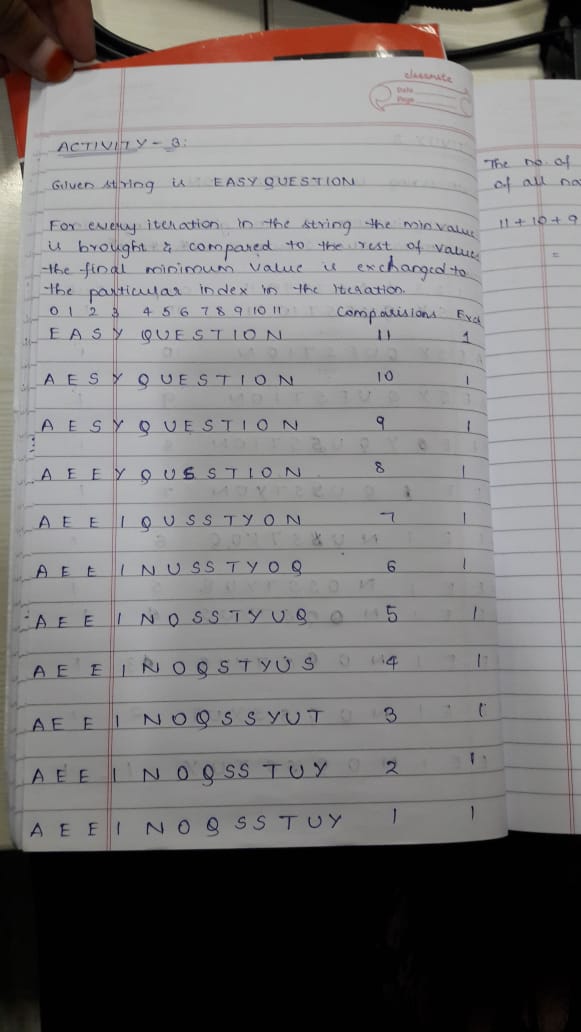 classmate
Date
Page
ACTIVITY - 3:
Given string is EASY QUESTION
For every iteration in the string the min value
is brought & compared to the rest of values
the final minimum value is exchanged to
the particular index in the iteration.
0 1 2 3 4 5 6 7 8 9 10 11 Comparisions Exch
E A S Y Q U E S T I O N 11 1
A E S Y Q U E S T I O N 10 1
A E S Y Q U E S T I O N 9 1
A E E Y Q U S S T I O N 8 1
A E E I Q U S S T Y O N 7 1
A E E I N U S S T Y O Q 6 1
A E E I N O S S T Y U Q 5 1
A E E I N O Q S T Y U S 4 1
A E E I N O Q S S Y U T 3 1
A E E I N O Q S S T U Y 2 1
A E E I N O Q S S T U Y 1 1
The no. of
of all
11 + 10 + 9
=